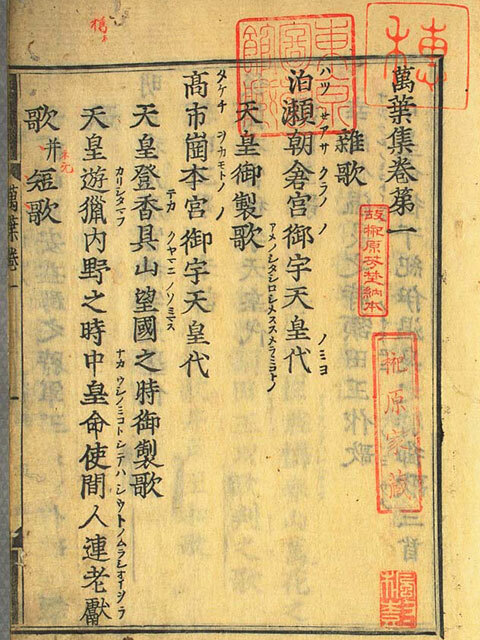 萬葉集巻第一
雜歌
ハツセアサクラノ ノ ノミヨ
泊瀬朝倉宮御宇天皇代
アメノシタシロシメススメラミコトノ
天皇御製歌
タケチ ヲカモトノ ノ
高市崗本宮御宇天皇代
天皇登香具山望國之時御製歌
カリシタマフ
天皇遊獵内野之時中皇命使間人連老獻
歌并短歌
萬葉巻一
故榊原芳埜納本
榊原家藏